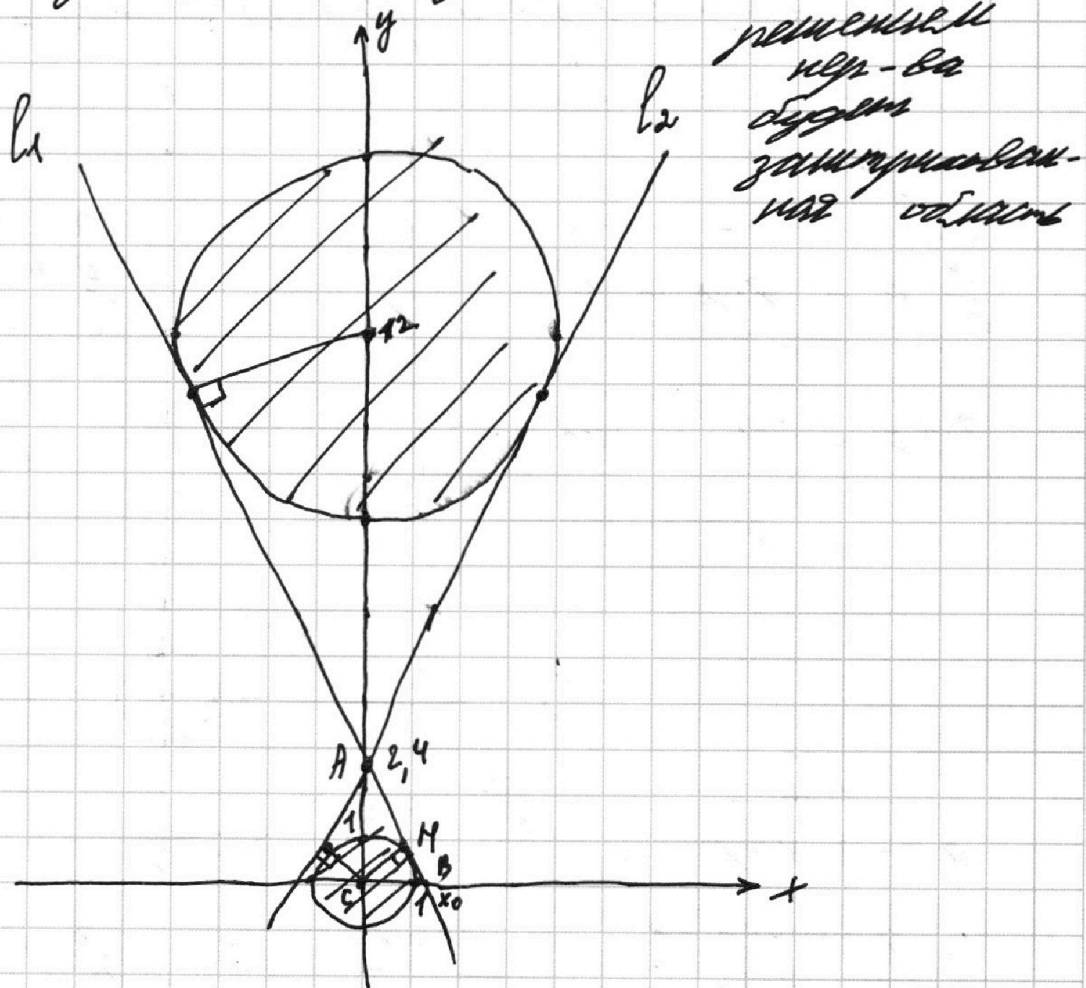 решением
нер-ва
будет
заштрихован-
ная область
y
l₁
l₂
12
A 2,4
1
M
B
C
1 x₀
x